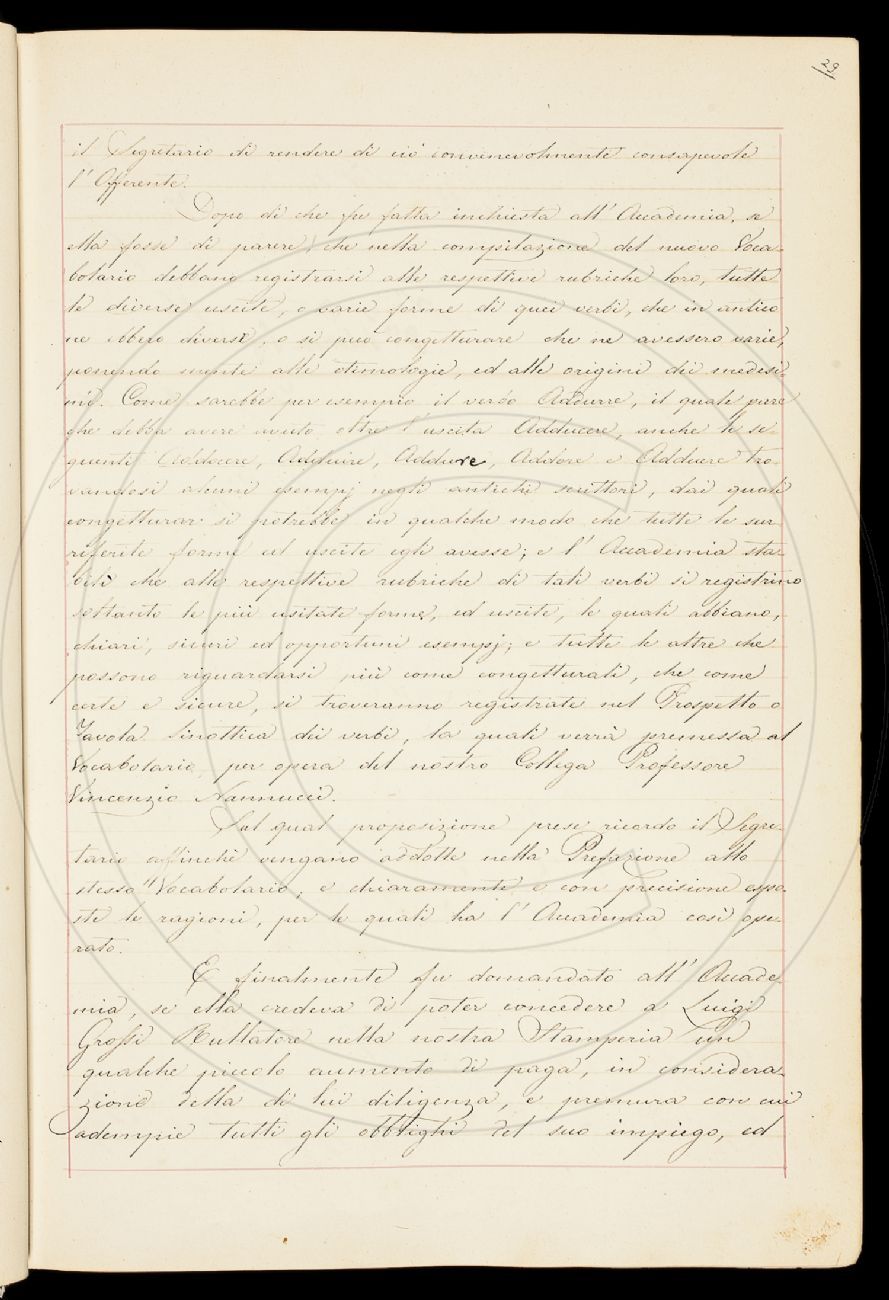 29
il Segretario di rendere di ciò convenevolmente consapevole
l'Offerente.
Dopo di che fu fatta inchiesta all'Accademia, se
ella fosse di parere, che nella compilazione del nuovo Voca-
bolario debbano registrarsi alle respettive rubriche loro, tutte
le diverse uscite, o varie forme di quei verbi, che in antico
ne ebbero diverse, o si può congetturare che ne avessero varie,
ponendo mente alle etimologie, ed alle origini dei medesi-
mi. Come sarebbe per esempio il verbo Addurre, il quale pare
che debba avere avuto oltre l'uscita Adducere, anche le se-
guenti Adducere, Adduire, Addure, Addore e Adduere tro-
vandosi alcuni esempj negli antichi scrittori, dai quali
congetturar si potrebbe in qualche modo che tutte le sur-
riferite forme ed uscite egli avesse; e l'Accademia sta-
bilì che alle respettive rubriche di tali verbi si registrino
soltanto le più usitate forme, ed uscite, le quali abbiano,
chiari, sicuri ed opportuni esempj; e tutte le altre che
possono riguardarsi più come congetturali, che come
certe e sicure, si troveranno registrate nel Prospetto o
Tavola Sinottica dei verbi, la quale verrà premessa al
Vocabolario, per opera del nostro Collega Professore
Vincenzio Nannucci.
Sul qual proposizione prese ricordo il Segre-
tario affinchè vengano addotte nella Prefazione allo
stesso Vocabolario, e chiaramente e con precisione espo-
ste le ragioni, per le quali ha l'Accademia così ope-
rato.
E finalmente fu domandato all'Accade-
mia, se ella credeva di poter concedere a Luigi
Grossi Rullatore nella nostra Stamperia un
qualche piccolo aumento di paga, in considera-
zione della di lui diligenza, e premura con cui
adempie tutti gli obblighi del suo impiego, ed